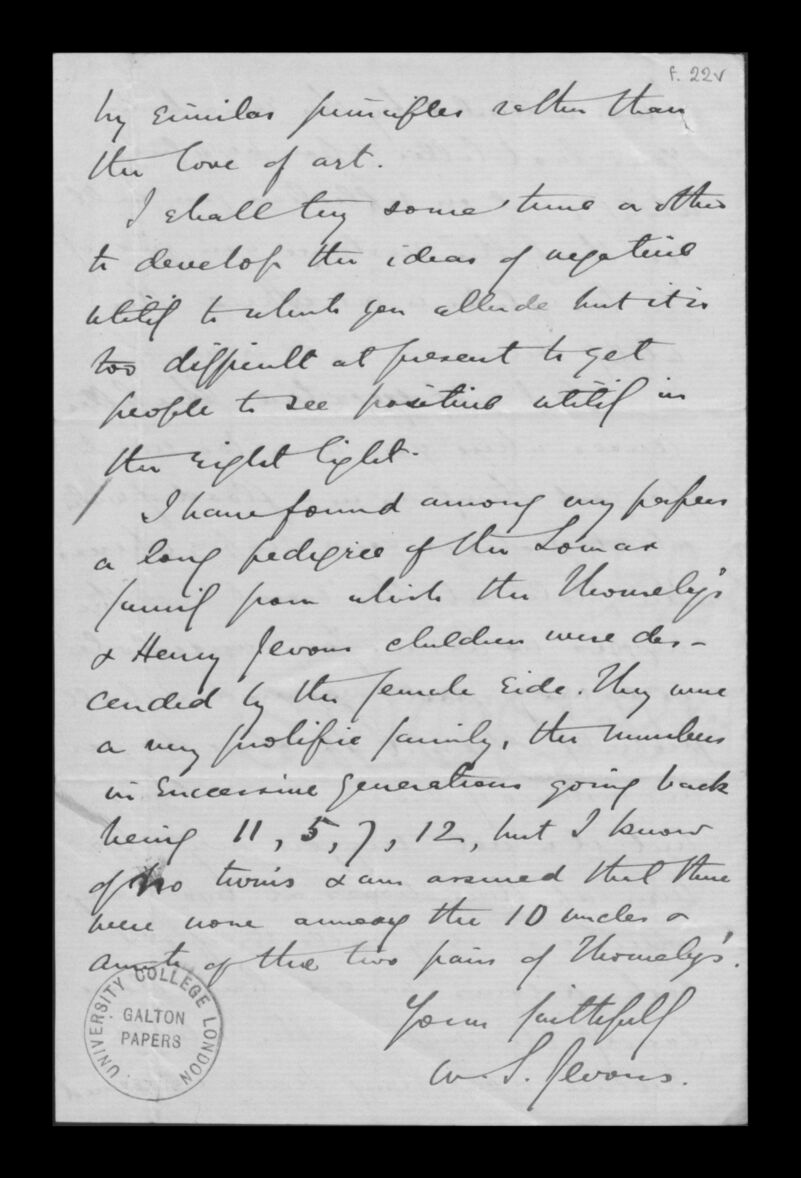 f. 22v
by similar principles rather than
the love of art.
I shall try some time or other
to develop the ideas of negative
utility to which you allude but it is
too difficult at present to get
people to see positive utility in
the right light.
I have found among my papers
a long pedigree of the Lomax
family from which the Thornely's
& Henry Jevons children were des-
cended by the female side. They were
a very prolific family, the numbers
in successive generations going back
being 11, 5, 7, 12, but I know
of no twins & am assured that there
were none among the 10 uncles &
aunts of the two pairs of Thornely's.
Yours faithfully
W. S. Jevons.
UNIVERSITY COLLEGE LONDON
GALTON
PAPERS